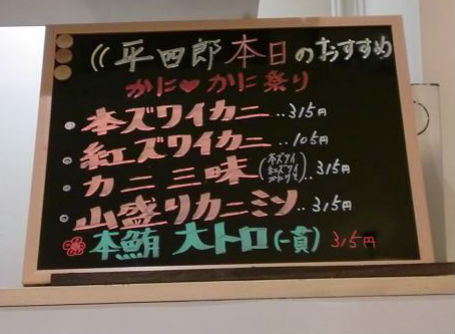 平四郎本日のおすすめ
かに♥かに祭り
本ズワイカニ‥315円
紅ズワイカニ‥105円
カニ三味(本ズワイ 紅ズワイ かにみそ)‥315円
山盛りカニミソ‥315円
本鮪 大トロ(一貫)315円